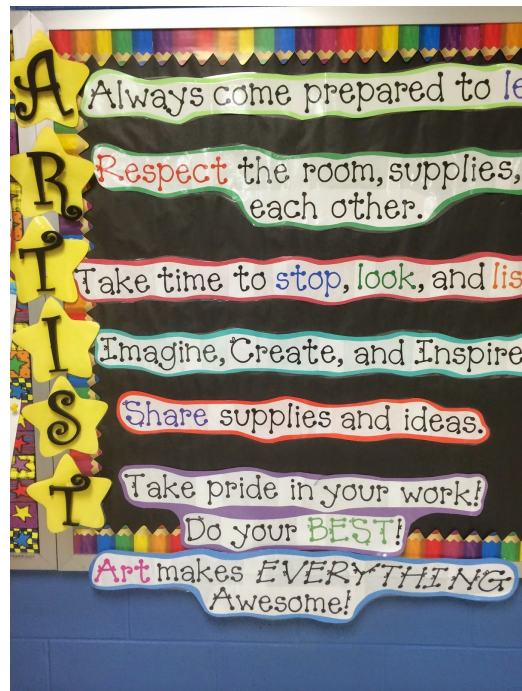 A Always come prepared to
R Respect the room, supplies,
each other.
T Take time to stop, look, and
I Imagine, Create, and Inspire
S Share supplies and ideas.
T Take pride in your work!
Do your BEST!
Art makes EVERYTHING
Awesome!